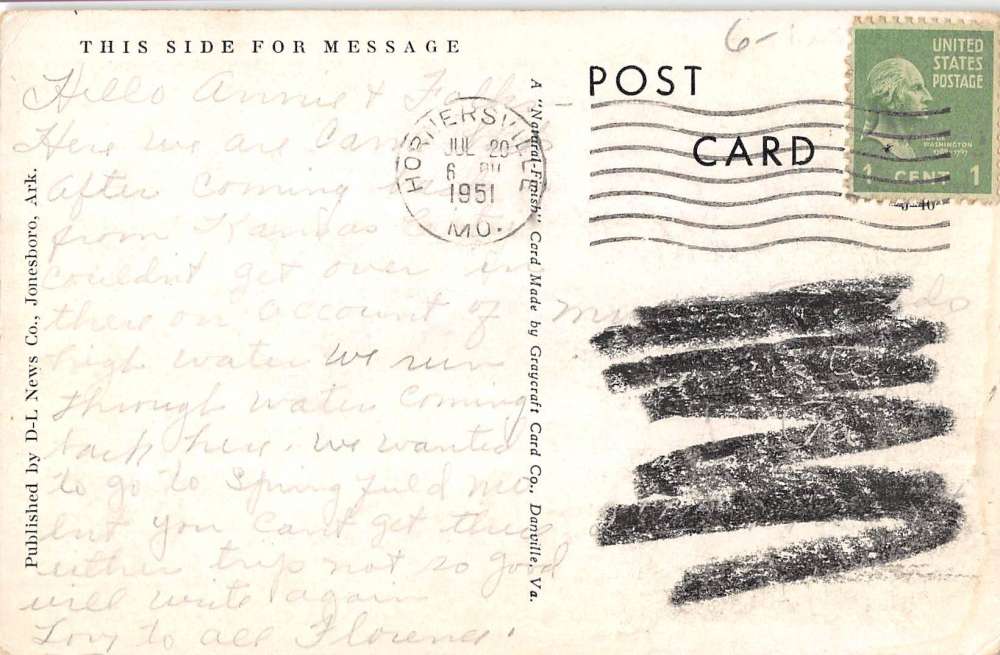 THIS SIDE FOR MESSAGE
Hello Annie & Folks -
Here we are
after coming
from Kansas City
couldn't get over in
there on account of
high water we run
through water coming
back here. we wanted
to go to Springfield Mo
but you cant get there
either trip not so good
will write again
Love to all Florence.
Published by D-L News Co., Jonesboro, Ark.
A "Natural-Finish" Card Made by Graycraft Card Co., Danville, Va.
HORNERSVILLE
JUL 20
6 PM
1951
MO.
6-
POST
CARD
UNITED
STATES
POSTAGE
WASHINGTON
1 CENT 1